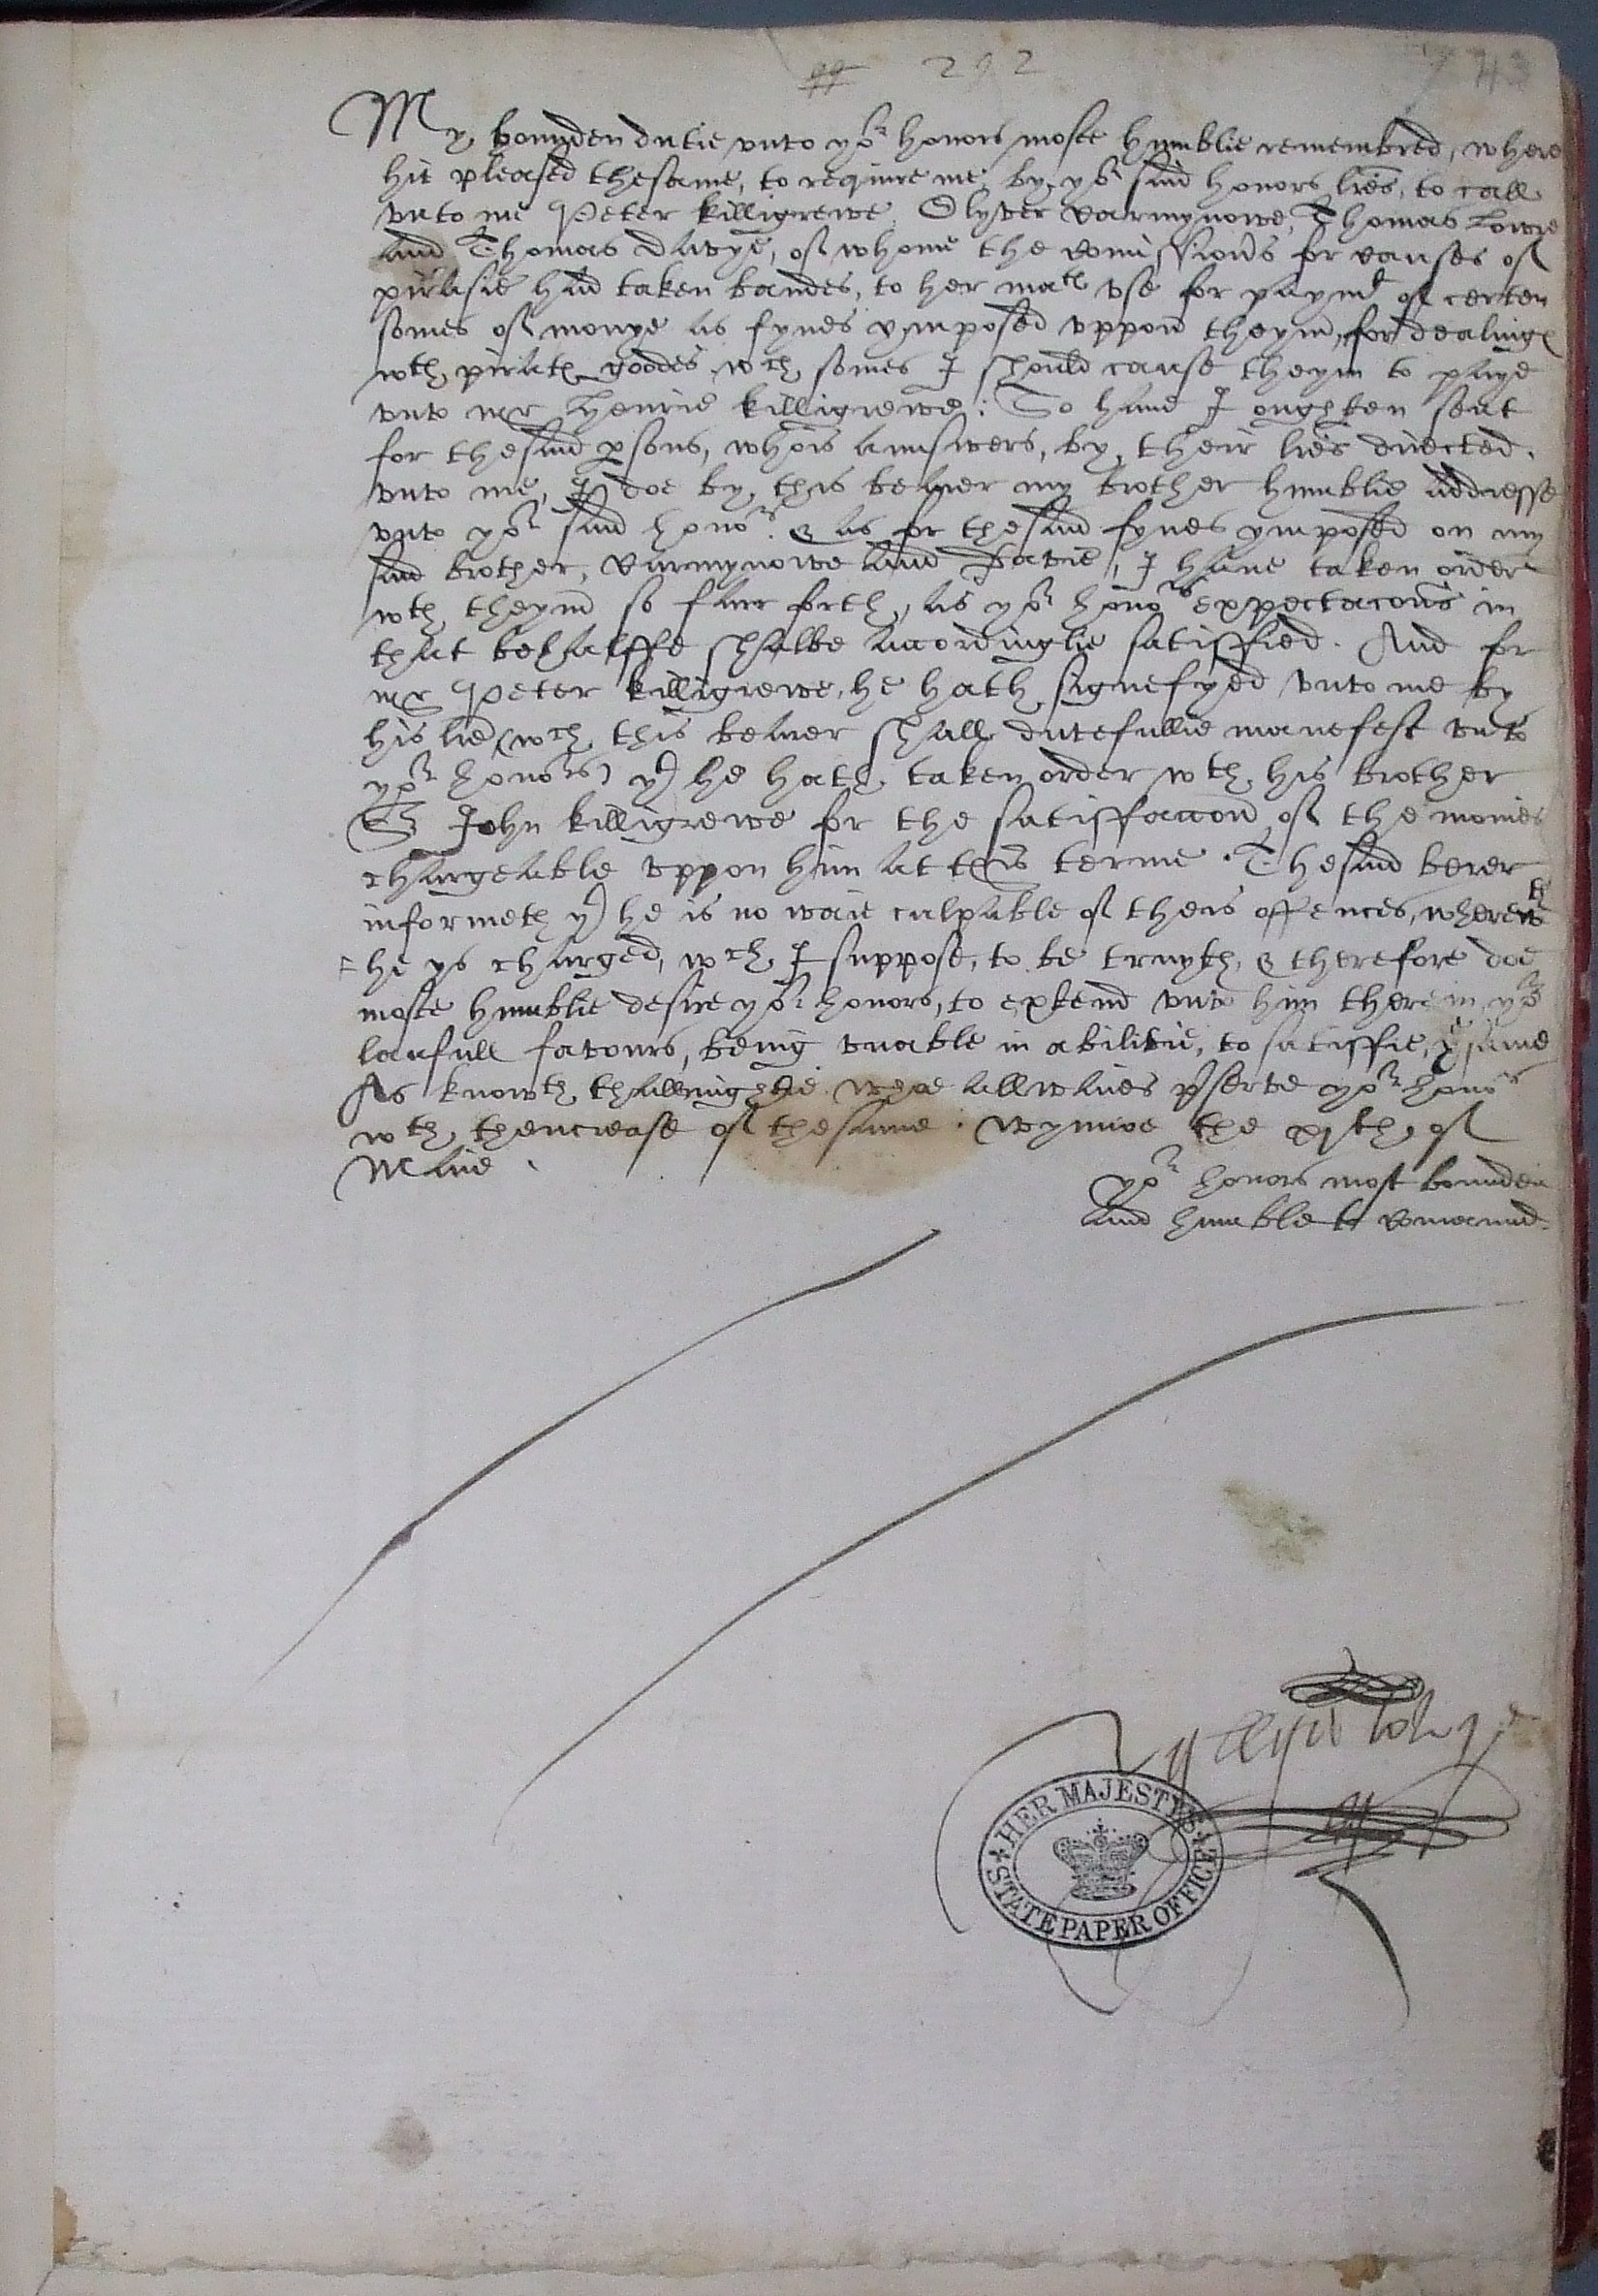 292
43
My bounden dutie vnto yor honors moste humblie remembred, where
hit pleased thesame, to require me, by yor said honors lres, to call
vnto me Peter killigrewe, Olyver Carmynowe, Thomas Lowre
and Thomas Davye, of whome the Comissionrs for causes of
pirasie had taken bandes, to her mats vse for paymt of certen
somes of monye as fynes ymposed vppon theym, for dealings
wth pirats goodes, wch somes I should cause theym to paye
vnto mr Henrie killigrewe: So haue I oughten sent
for thesaid psons, whois aunswers, by their lres directed
vnto me, I doe by this bearer my brother humblie addresse
vnto yor said honors. & as for thesaid fynes ymposed on my
said brother, Carmynowe and Davie, I haue taken order
wth theym so farr forth, as yor honors expectacons in
that behalffe shalbe accordinglie satisffied. And for
mr Peter killigrewe, he hath signefyed vnto me by
his lre (wch this bearer shall dutefullie manefest vnto
yor honors) yt he hath taken order wth his brother
Sr John killigrewe for the satisffaccon of the monies
chargeable vppon him at this terme. Thesaid berer
informeth yt he is no waie culpable of theis offences, wherewth
he ys charged, wch I suppose, to be truyth, & therefore doe
moste humblie desire yor honors, to extend vnto him therein yor
laufull favours, being vnable in abilitie, to satisffie, ye same
As knowth thallmightie whoe allwaies pserve yor honors
wth thencrease of thesame. Wynnoe the xjth of
Maie
yor honors most bounden
and humble to Comaund
HER MAJESTY'S
STATE PAPER OFFICE